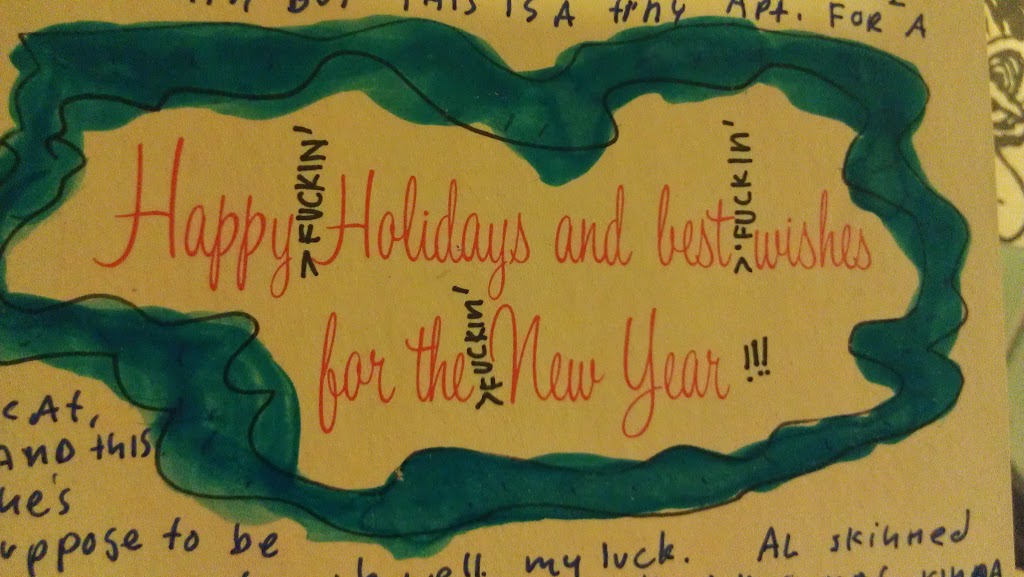 BUT THIS IS A tiny Apt. FOR A
Happy >FUCKIN' Holidays and best >FUCKIN' wishes
for the >FUCKIN' New Year !!!
cAt,
AND this
he's
suppose to be
well my luck. AL skinned